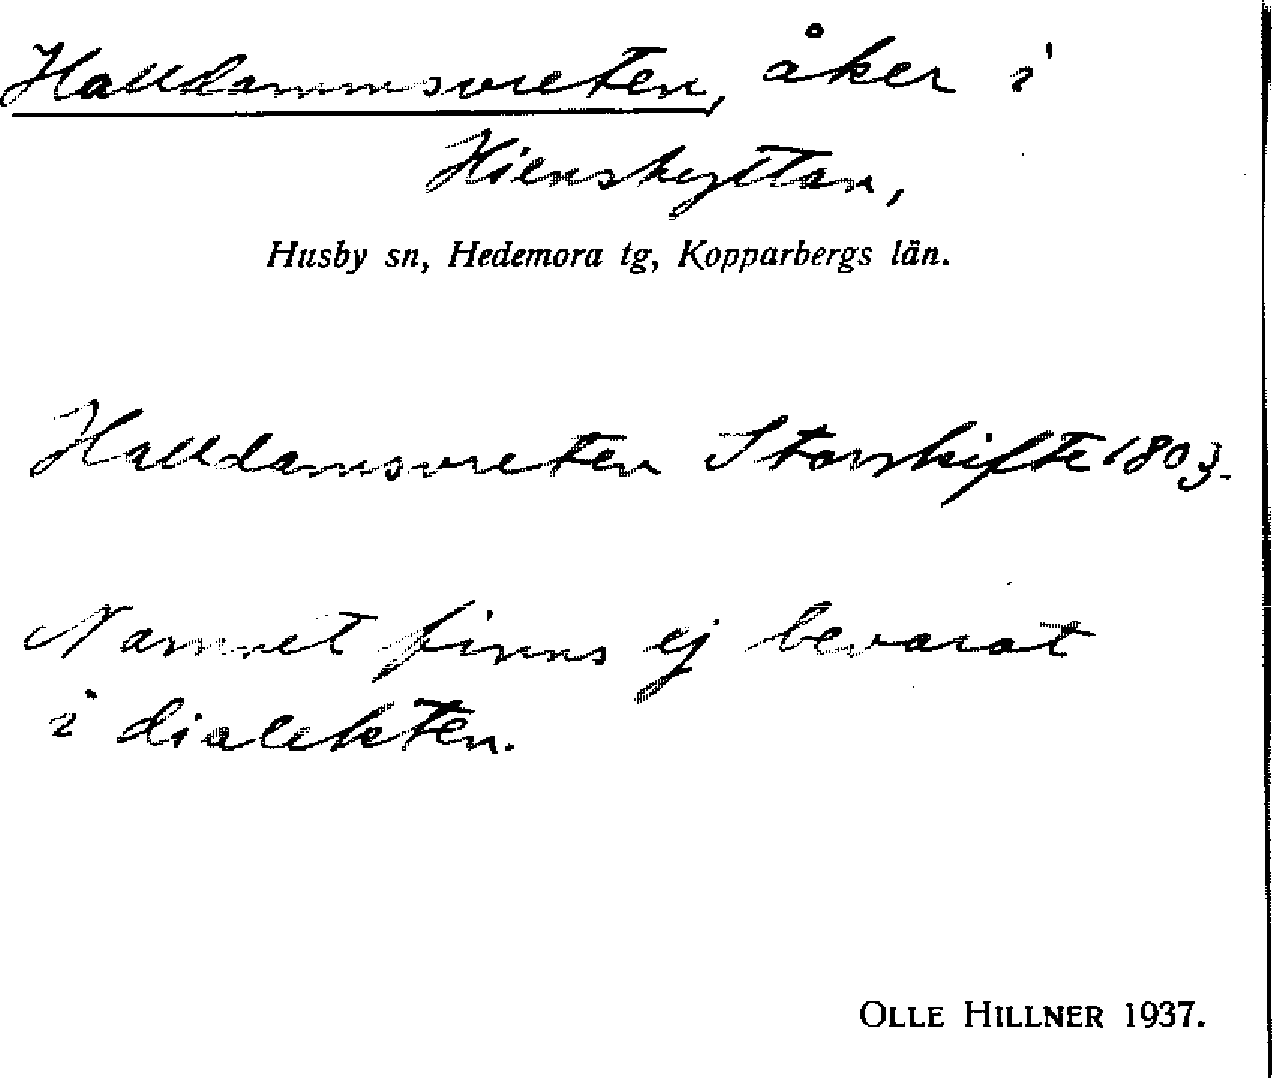 Halldammsvreten, åker i
Hienshyttan,
Husby sn, Hedemora tg, Kopparbergs län.
Halldamsvreten Storskifte 1803.
Namnet finns ej bevarat
i dialekten.
OLLE HILLNER 1937.